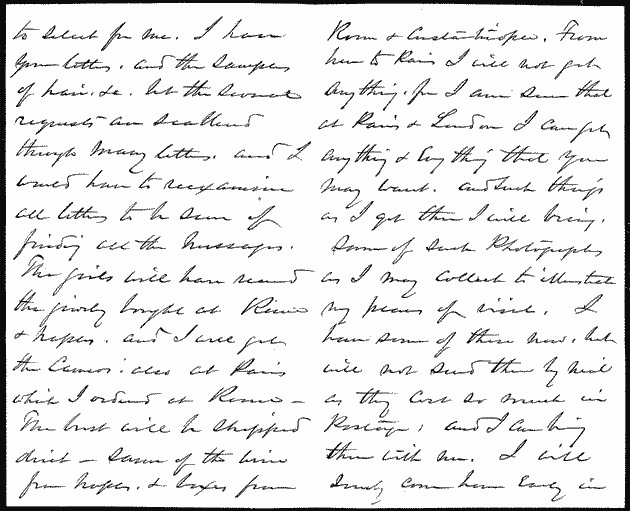 to select for me. I have
your letters. and the samples
of hair. &c. but the several
requests are scattered
through many letters. and I
would have to reexamine
all letters to be sure of
finding all the messages.
The girls will have received
the jewelry bought at Rome
& Naples. and I will get
the Cameos: also at Paris
which I ordered at Rome –
The bust will be shipped
direct – some of the wine
from Naples. & boxes from
Rome & Constantinople. From
here to Paris I will not get
anything. for I am sure that
at Paris & London I can get
anything & Everything that you
may want. and such things
as I get then I will bring.
some of such Photographs
as I may collect to illustrate
my places of visit. I
have some of these now. but
will not send them by mail
as they cost so much in
Postage, and I can bring
them with me. I will
surely come home Early in